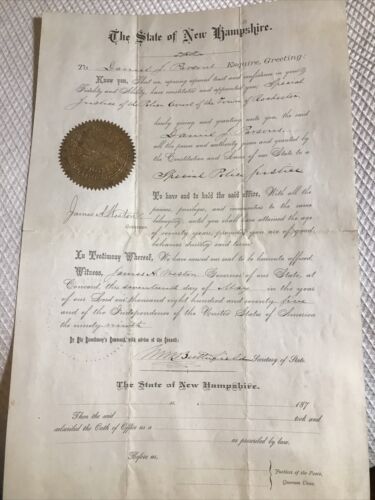 The State of New Hampshire.
To Daniel J. Parsons Esquire, Greeting:
Know you, That we, reposing especial trust and confidence in your
Fidelity and Ability, have constituted and appointed you, Special
Justice of the Police Court of the Town of Rochester,
hereby giving and granting unto you, the said
Daniel J. Parsons,
all the power and authority given and granted by
the Constitution and Laws of our State to a
Special Police Justice
To have and to hold the said office, With all the
powers, privileges, and immunities to the same
belonging, until you shall have attained the age
of seventy years, provided you are of good
behavior during said term.
James A. Weston
Governor.
In Testimony Whereof, We have caused our seal to be hereunto affixed.
Witness, James A. Weston Governor of our State, at
Concord, this seventeenth day of May in the year
of our Lord one thousand eight hundred and seventy five
and of the Independence of the United States of America
the ninety-ninth
By His Excellency's Command, with advice of the Council:
Secretary of State.
The State of New Hampshire.
ss. 187
Then the said took and
subscribed the Oath of Office as a
as prescribed by law.
Before us,
Justices of the Peace,
Quorum Unus.